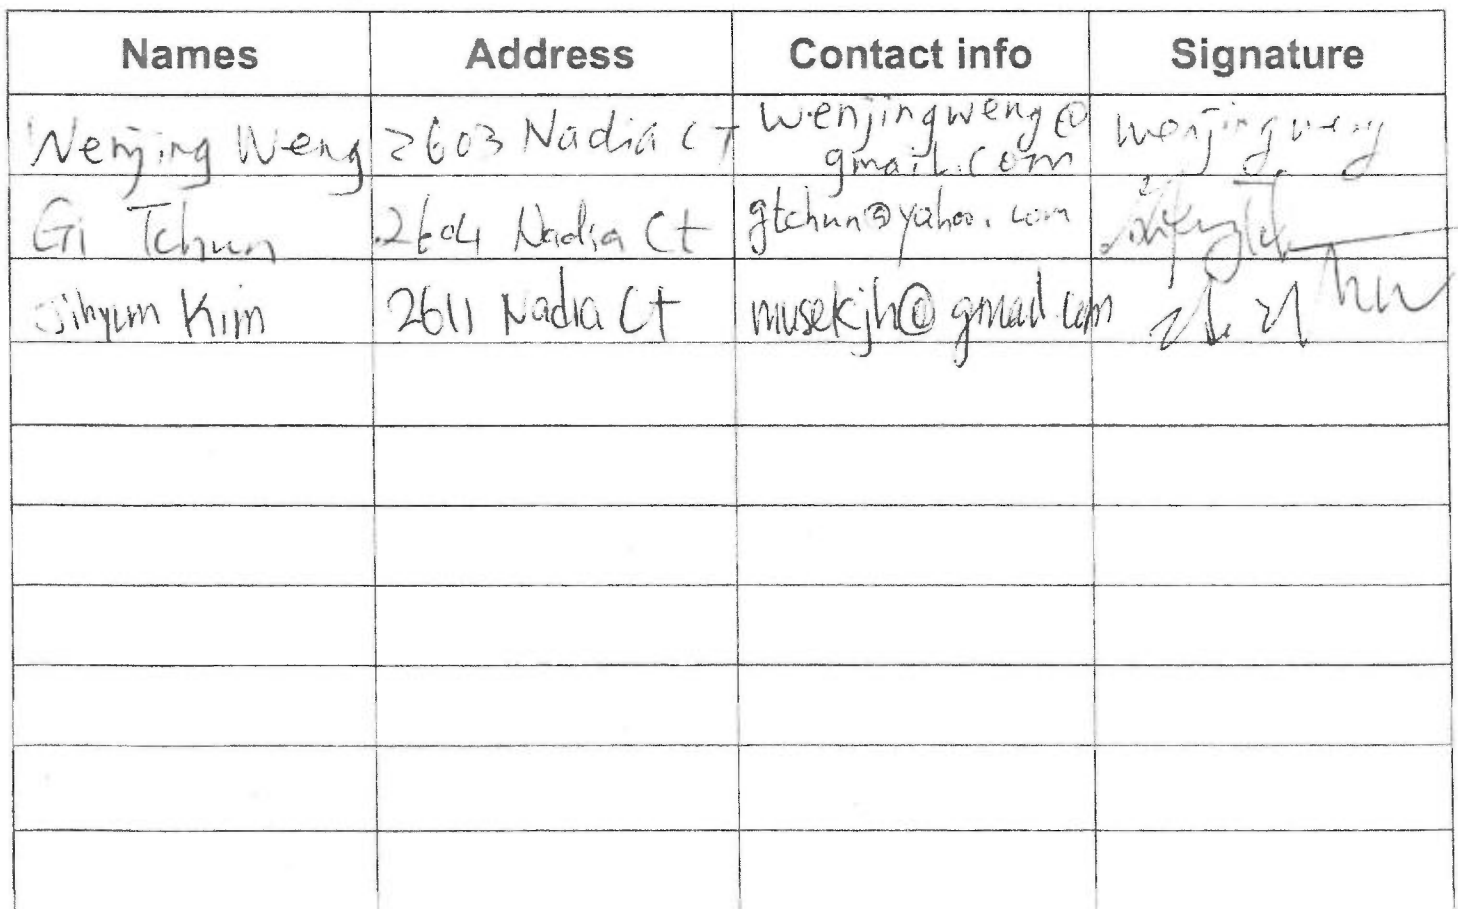 Names Address Contact info Signature
Wenjing Weng 2603 Nadia CT wenjingweng@
gmail.com wenjing weng
Gi Tchun 2604 Nadia Ct gtchun@yahoo.com
Jihyun Kim 2611 Nadia Ct musekjh@gmail.com